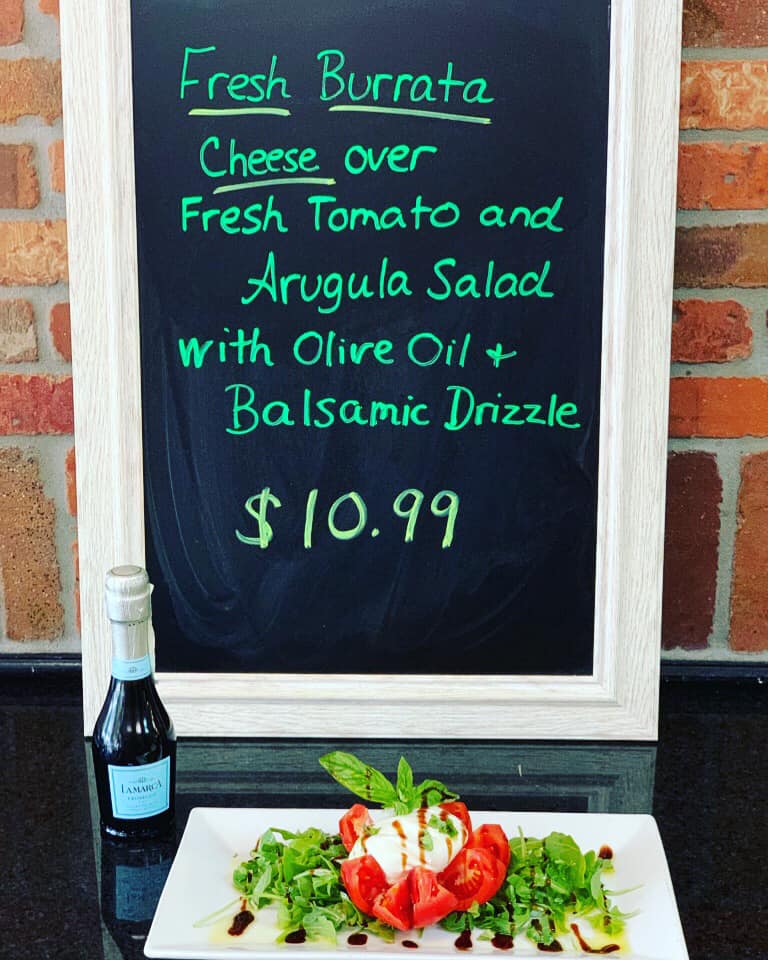 Fresh Burrata
Cheese over
Fresh Tomato and
Arugula Salad
with Olive Oil +
Balsamic Drizzle
$10.99
LAMARCA
PROSECCO